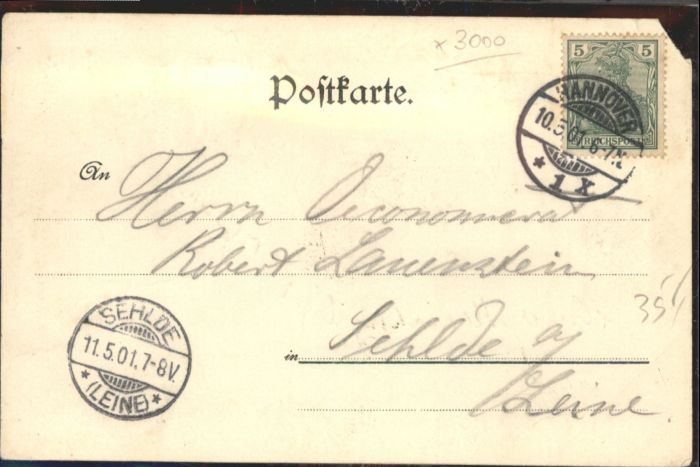 x 3000
5 5
REICHSPOST
HANNOVER
10.5.01.6-7N.
* 1 X
Postkarte.
An Herrn Oeconomierat
Robert Lauenstein
35
in Sehlde a/
Leine.
SEHLDE
11.5.01.7-8V.
* (LEINE) *